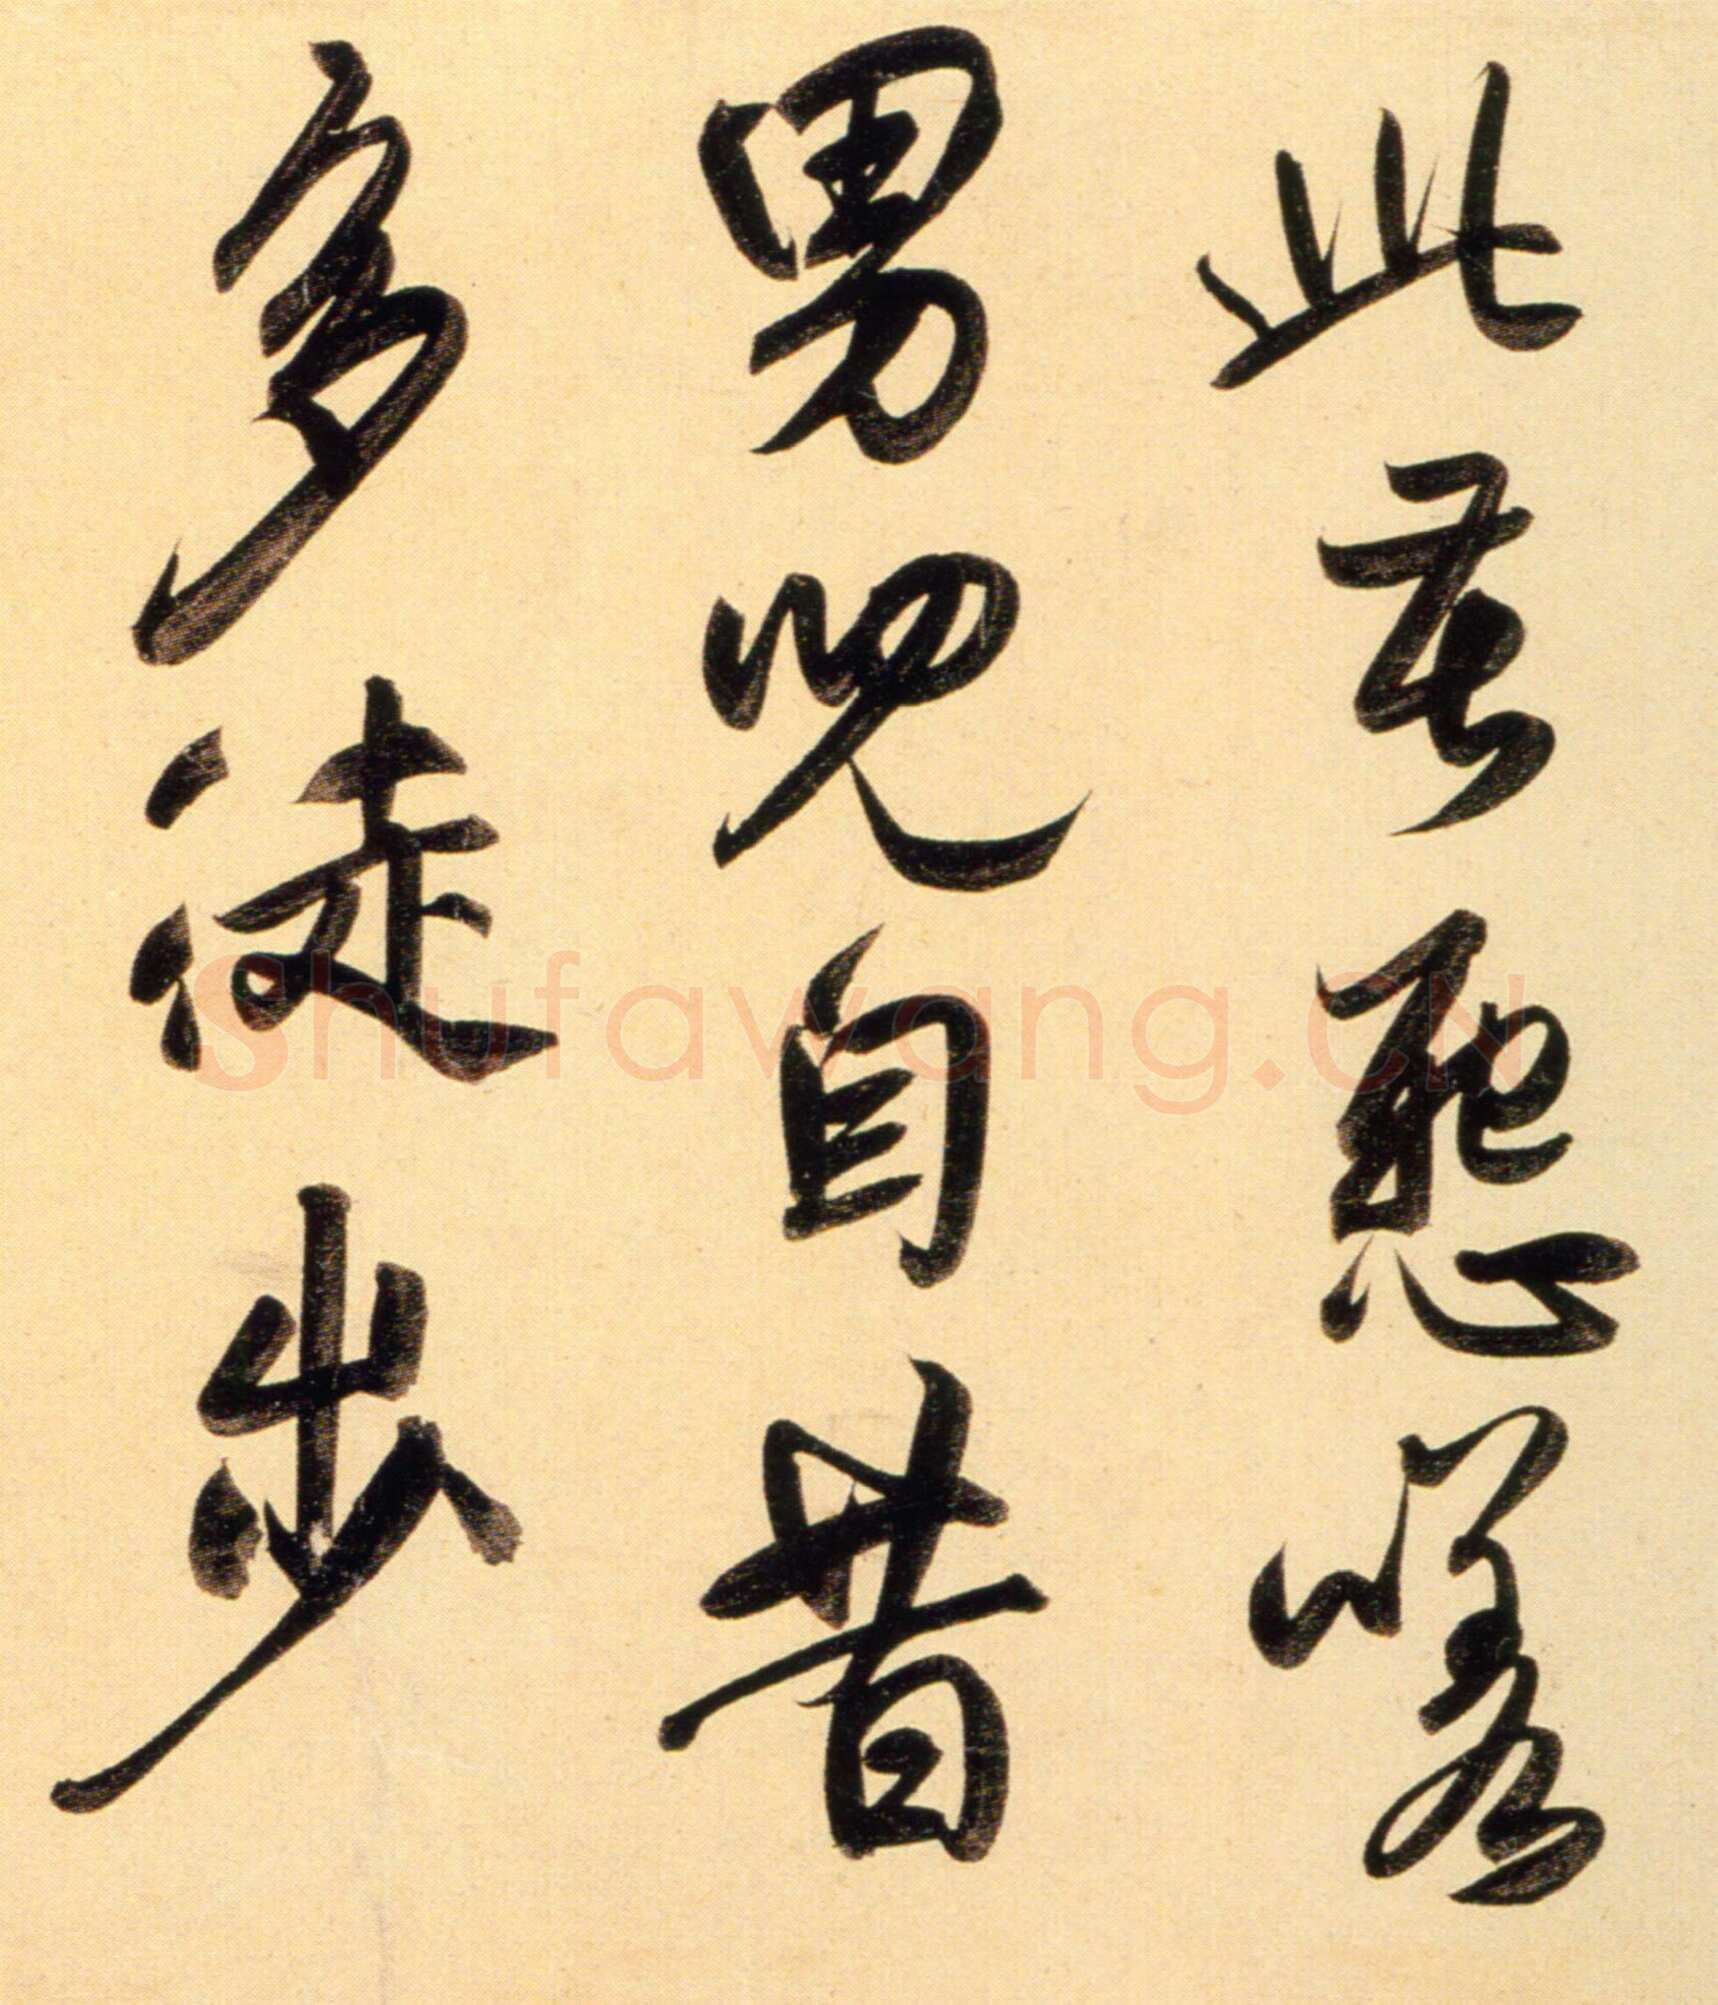 此嗟
男兒自昔
多徒步
Shufawang.CN